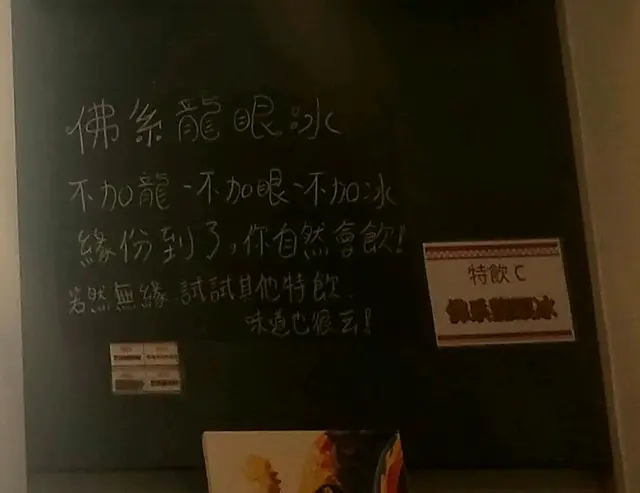 佛系龍眼冰
不加龍、不加眼、不加冰
緣份到了,你自然會飲!
若然無緣 試試其他特飲、
味道也很玄!
特飲 C
佛系龍眼冰